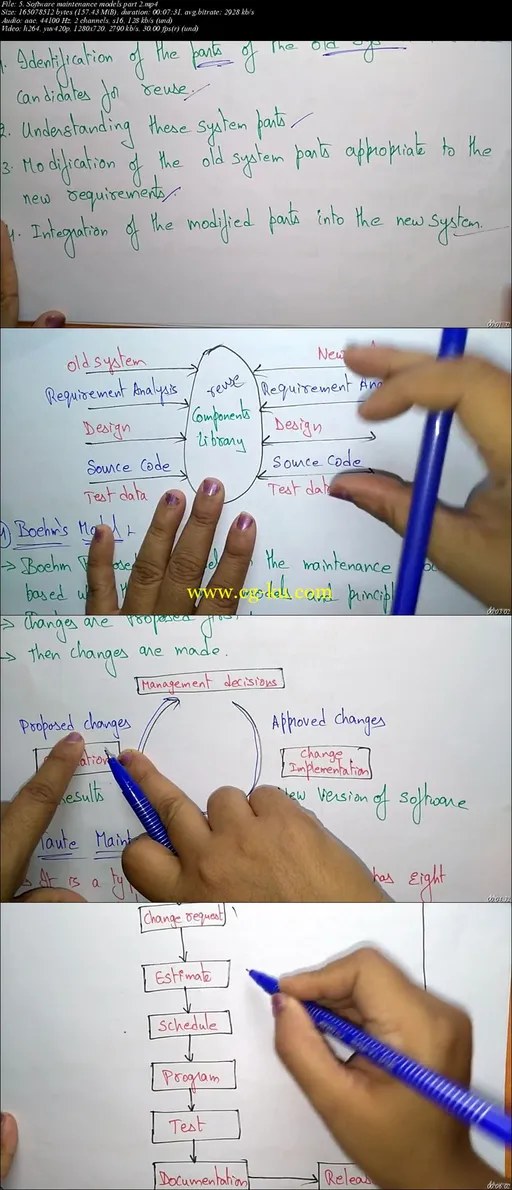 File: 5. Software maintenance models part 2.mp4
Size: 165078512 bytes (157.43 MiB), duration: 00:07:31, avg.bitrate: 2928 kb/s
Audio: aac, 44100 Hz, 2 channels, s16, 128 kb/s (und)
Video: h264, yuv420p, 1280x720, 2790 kb/s, 30.00 fps(r) (und)
1. Identification of the parts of the old
candidates for reuse.
2. Understanding these system parts
3. Modification of the old system parts appropriate to the
new requirements
4. Integration of the modified parts into the new system.
Old system New
Requirement Analysis reuse Requirement Ana
Design Components Design
Source Code Library Source Code
Test data Test data
Boehm's Model :-
→ Boehm the maintenance
www.cgdss.com
based models and princip
→ Changes are proposed
→ then changes are made.
Management decisions
Proposed changes Approved Changes
Change
Implementation
Results New Version of Software
Taute Maint
→ It is a ty has Eight
Change request
Estimate
Schedule
Program
Test
Documentation Releas